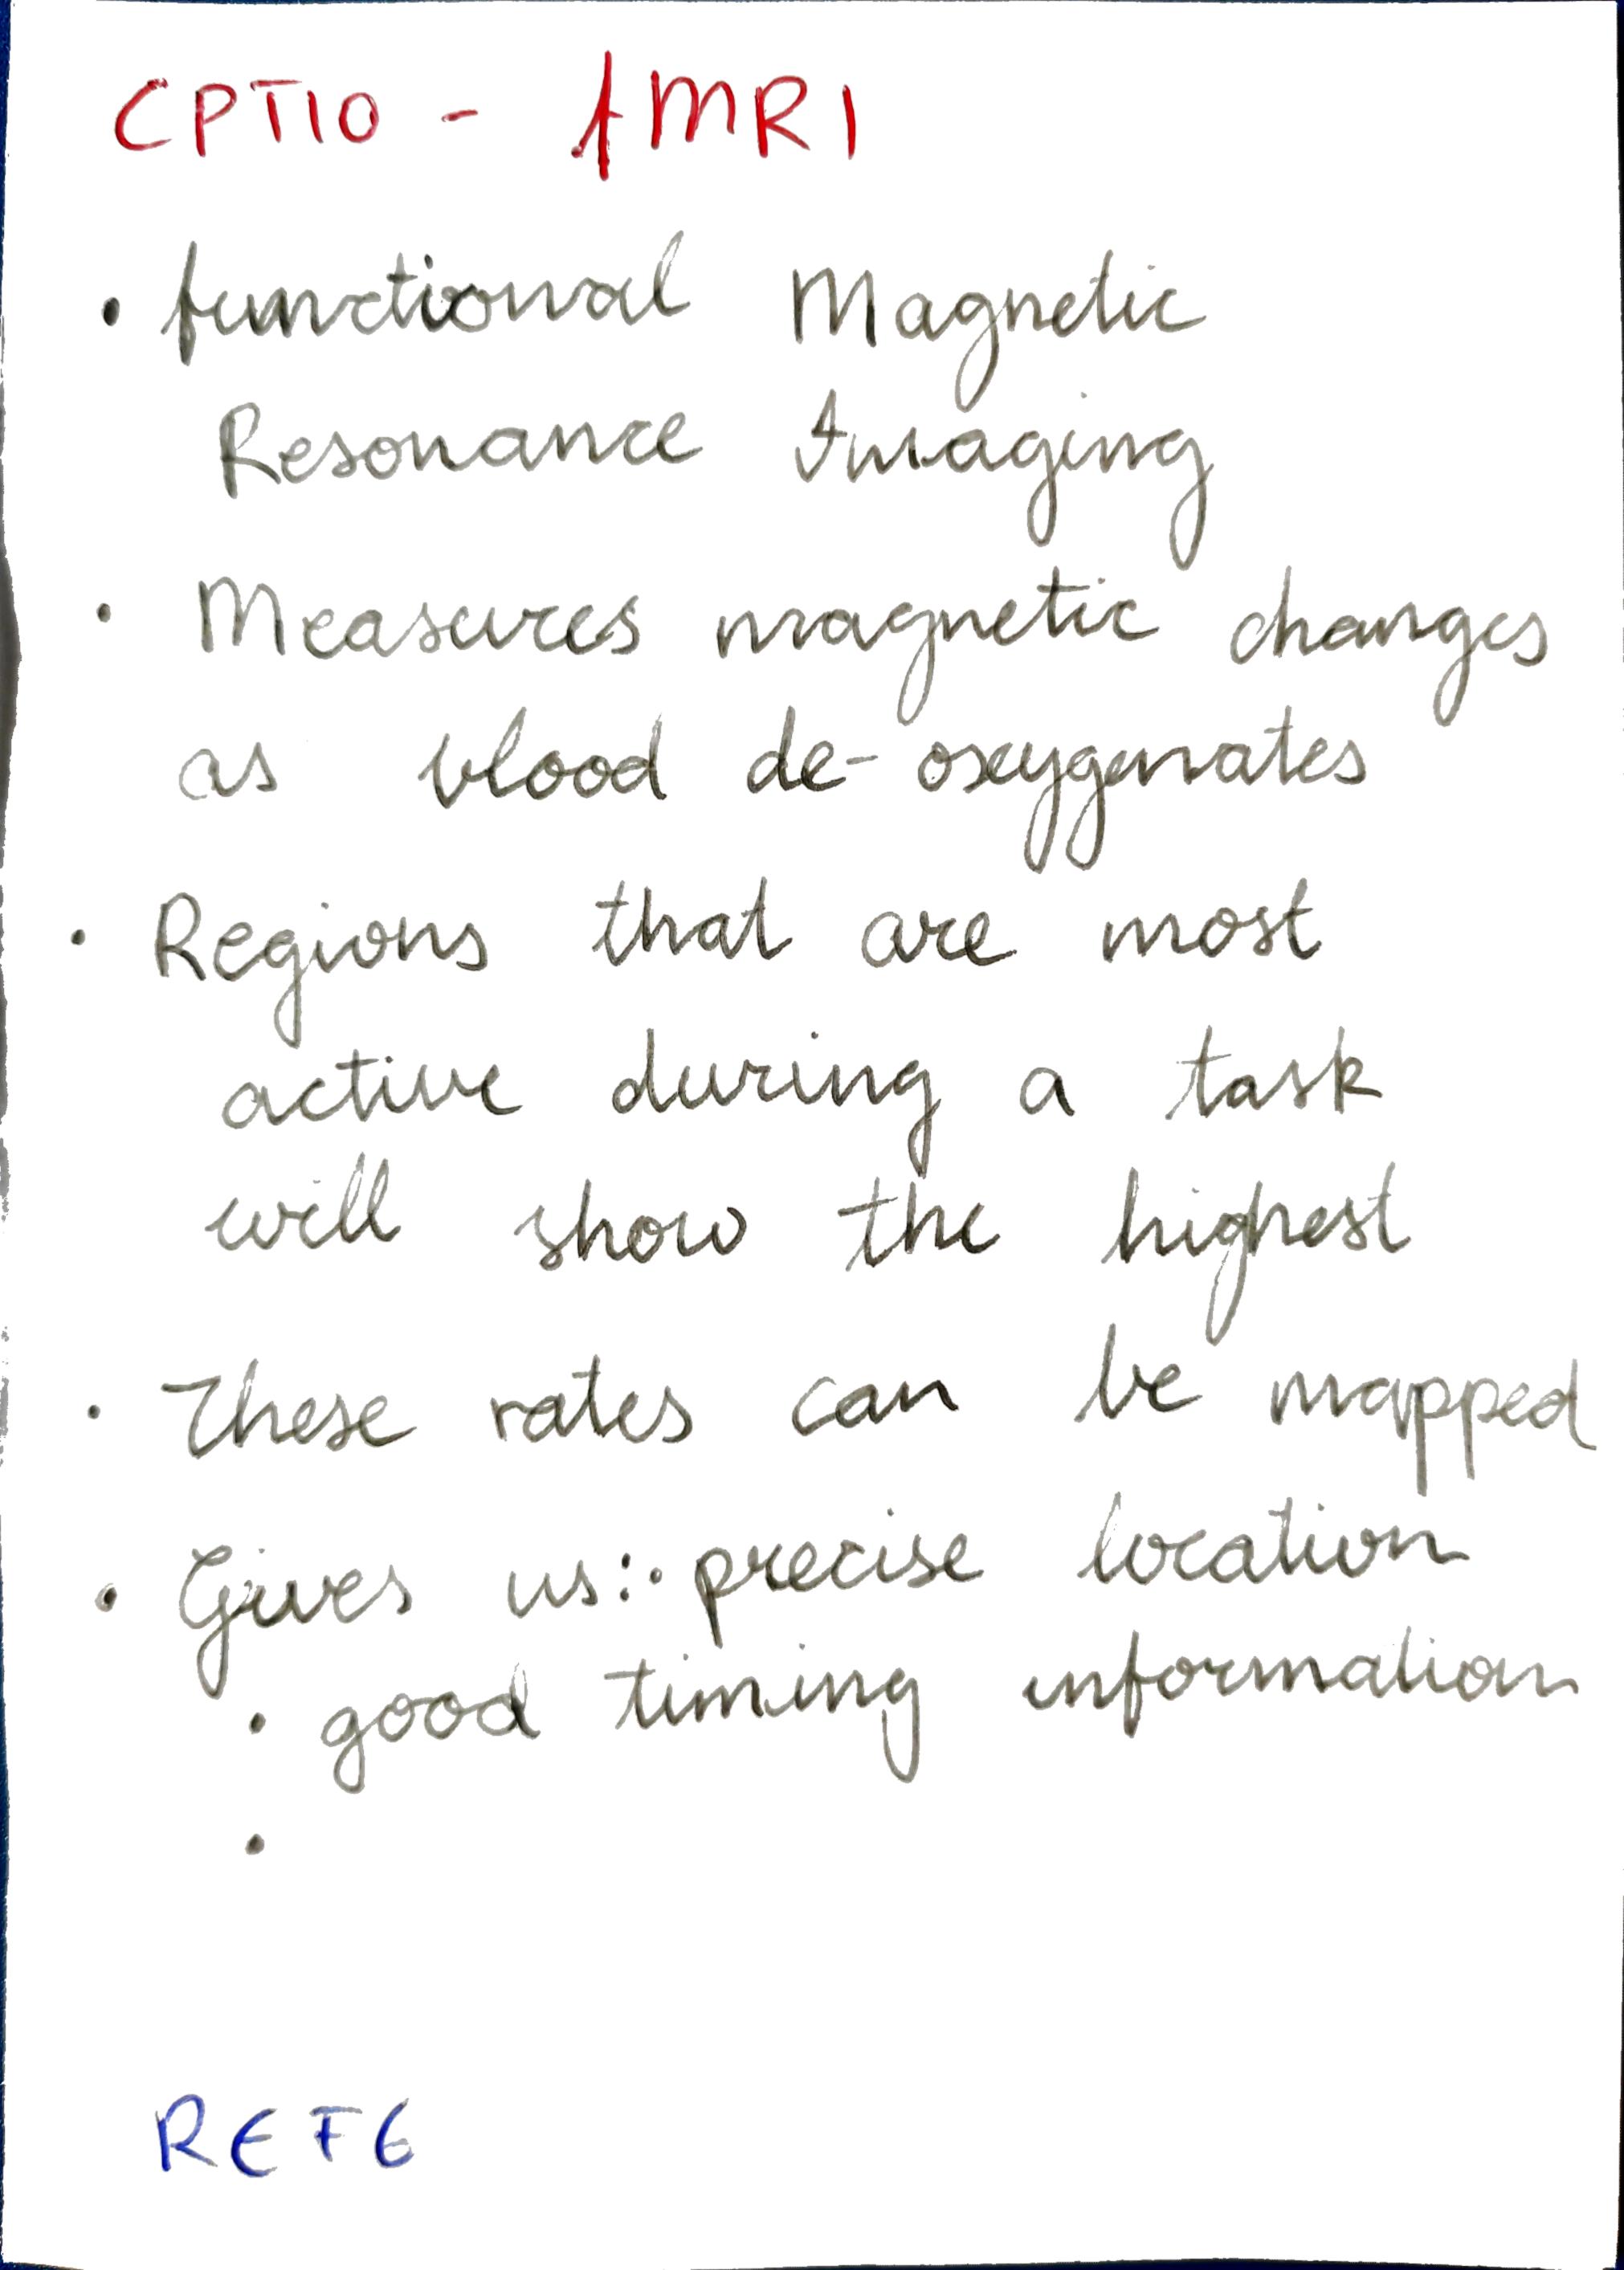 CPT10 - fMRI
• functional Magnetic
Resonance Imaging
• Measures magnetic changes
as blood de-oxygenates
• Regions that are most
active during a task
will show the highest
• These rates can be mapped
• Gives us: • precise location
• good timing information
•
REF6